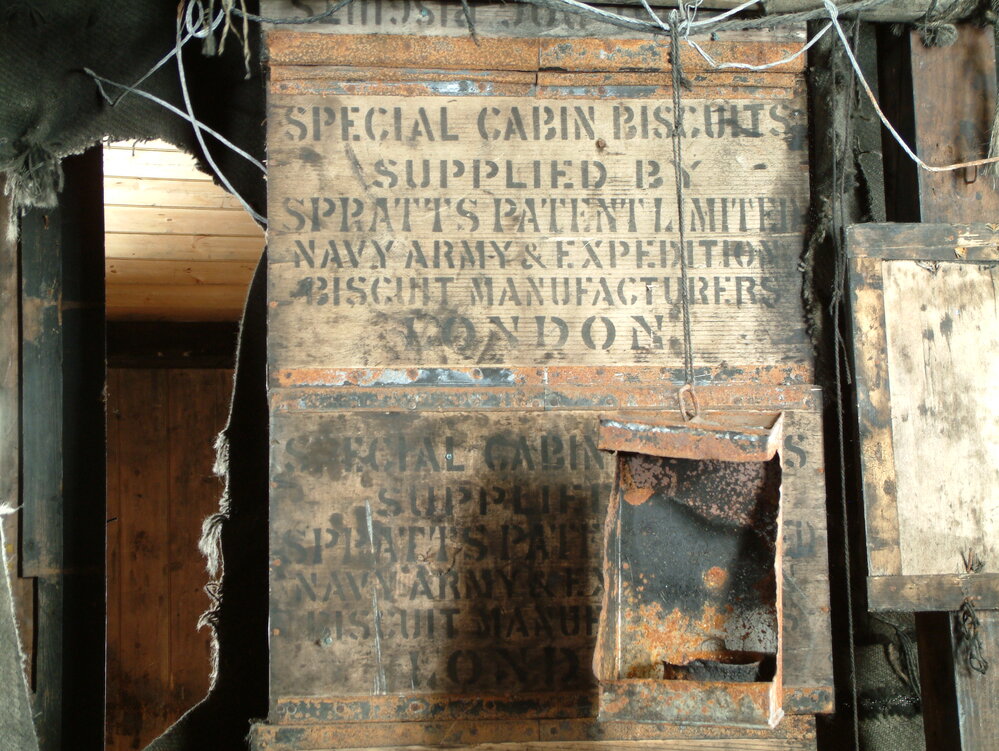 SPECIAL CABIN BISCUITS
SUPPLIED BY
SPRATT'S PATENT LIMITED
NAVY ARMY & EXPEDITION
BISCUIT MANUFACTURERS
LONDON
SPECIAL CABIN
SUPPLIE
SPRATT'S PATE
NAVY ARMY & EX
BISCUIT MANUF
LOND